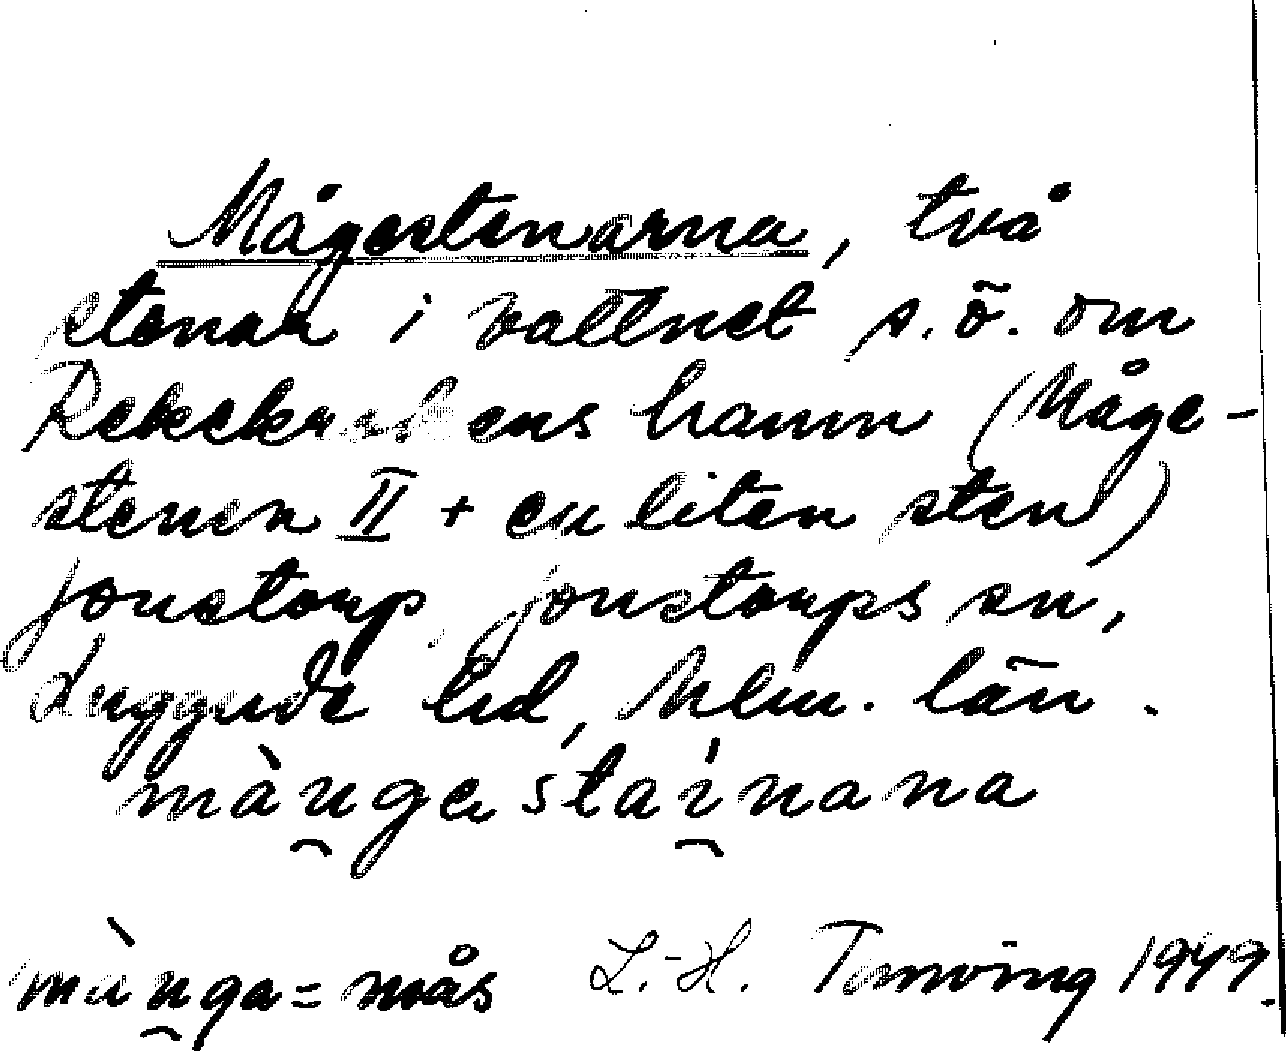 Mågestenarna, två
stenar i vattnet s.ö. om
hamn (Måge-
stenen II + en liten sten)
Jonstorp, Jonstorps sn,
Luggude hd, Mlm. län.
màu̯ga staí̯nana
màu̯ga = mås L.-H. 1949.